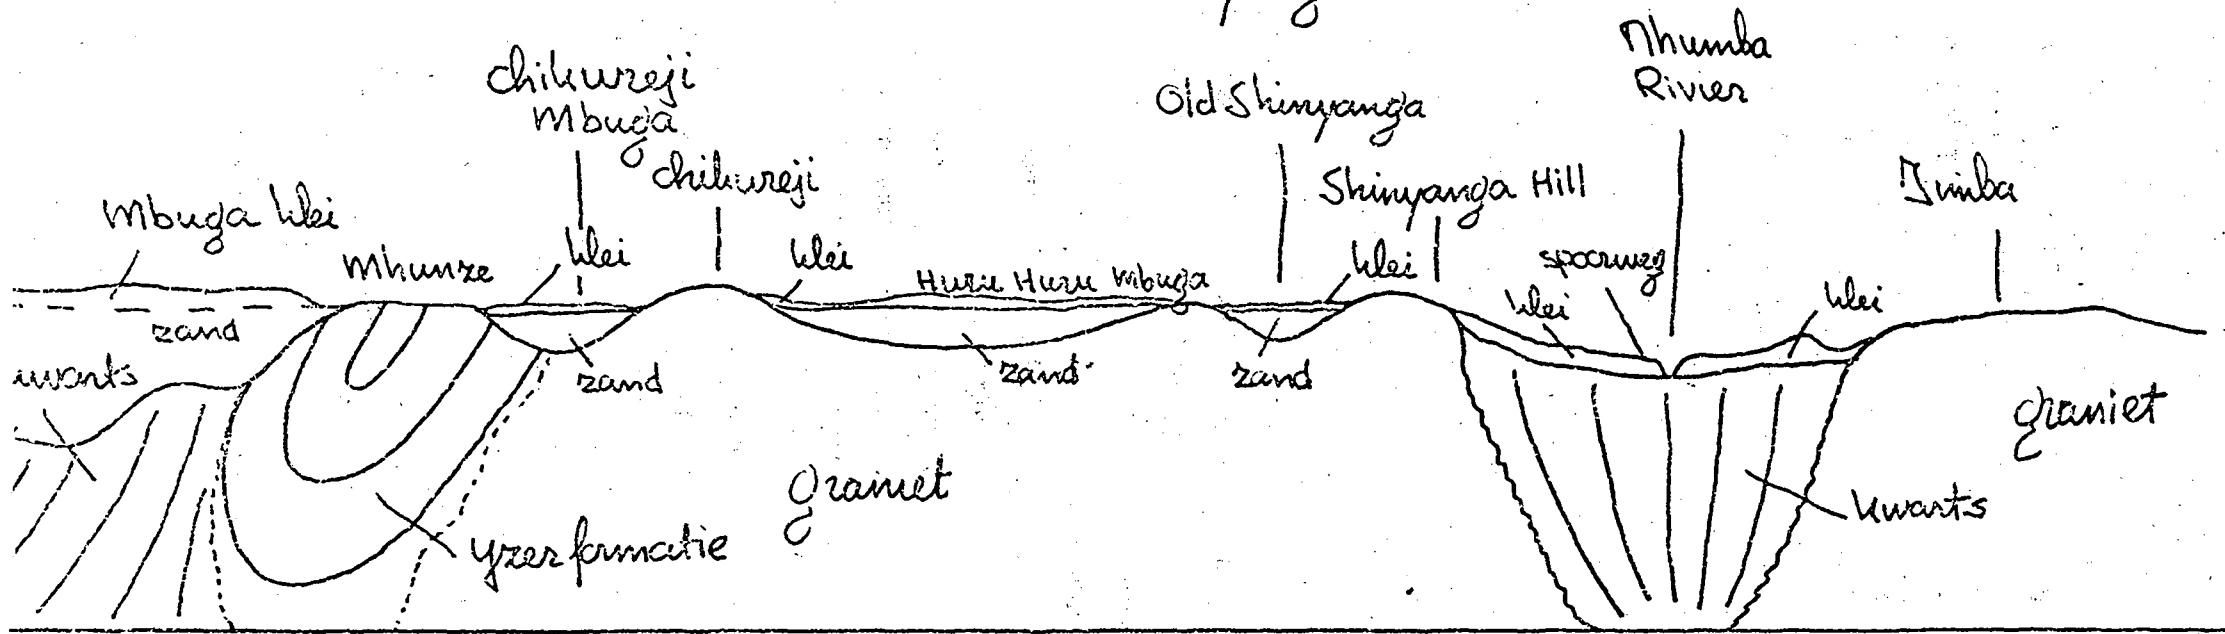 Nhumba
Rivier
Chikureji
Mbuga
Old Shinyanga
Chikureji
Shinyanga Hill
Jimba
Mbuga klei
Mhunze
klei
klei
Huru Huru Mbuga
klei
spoorweg
klei
klei
zand
zand
zand
zand
graniet
graniet
kwarts
yzerformatie